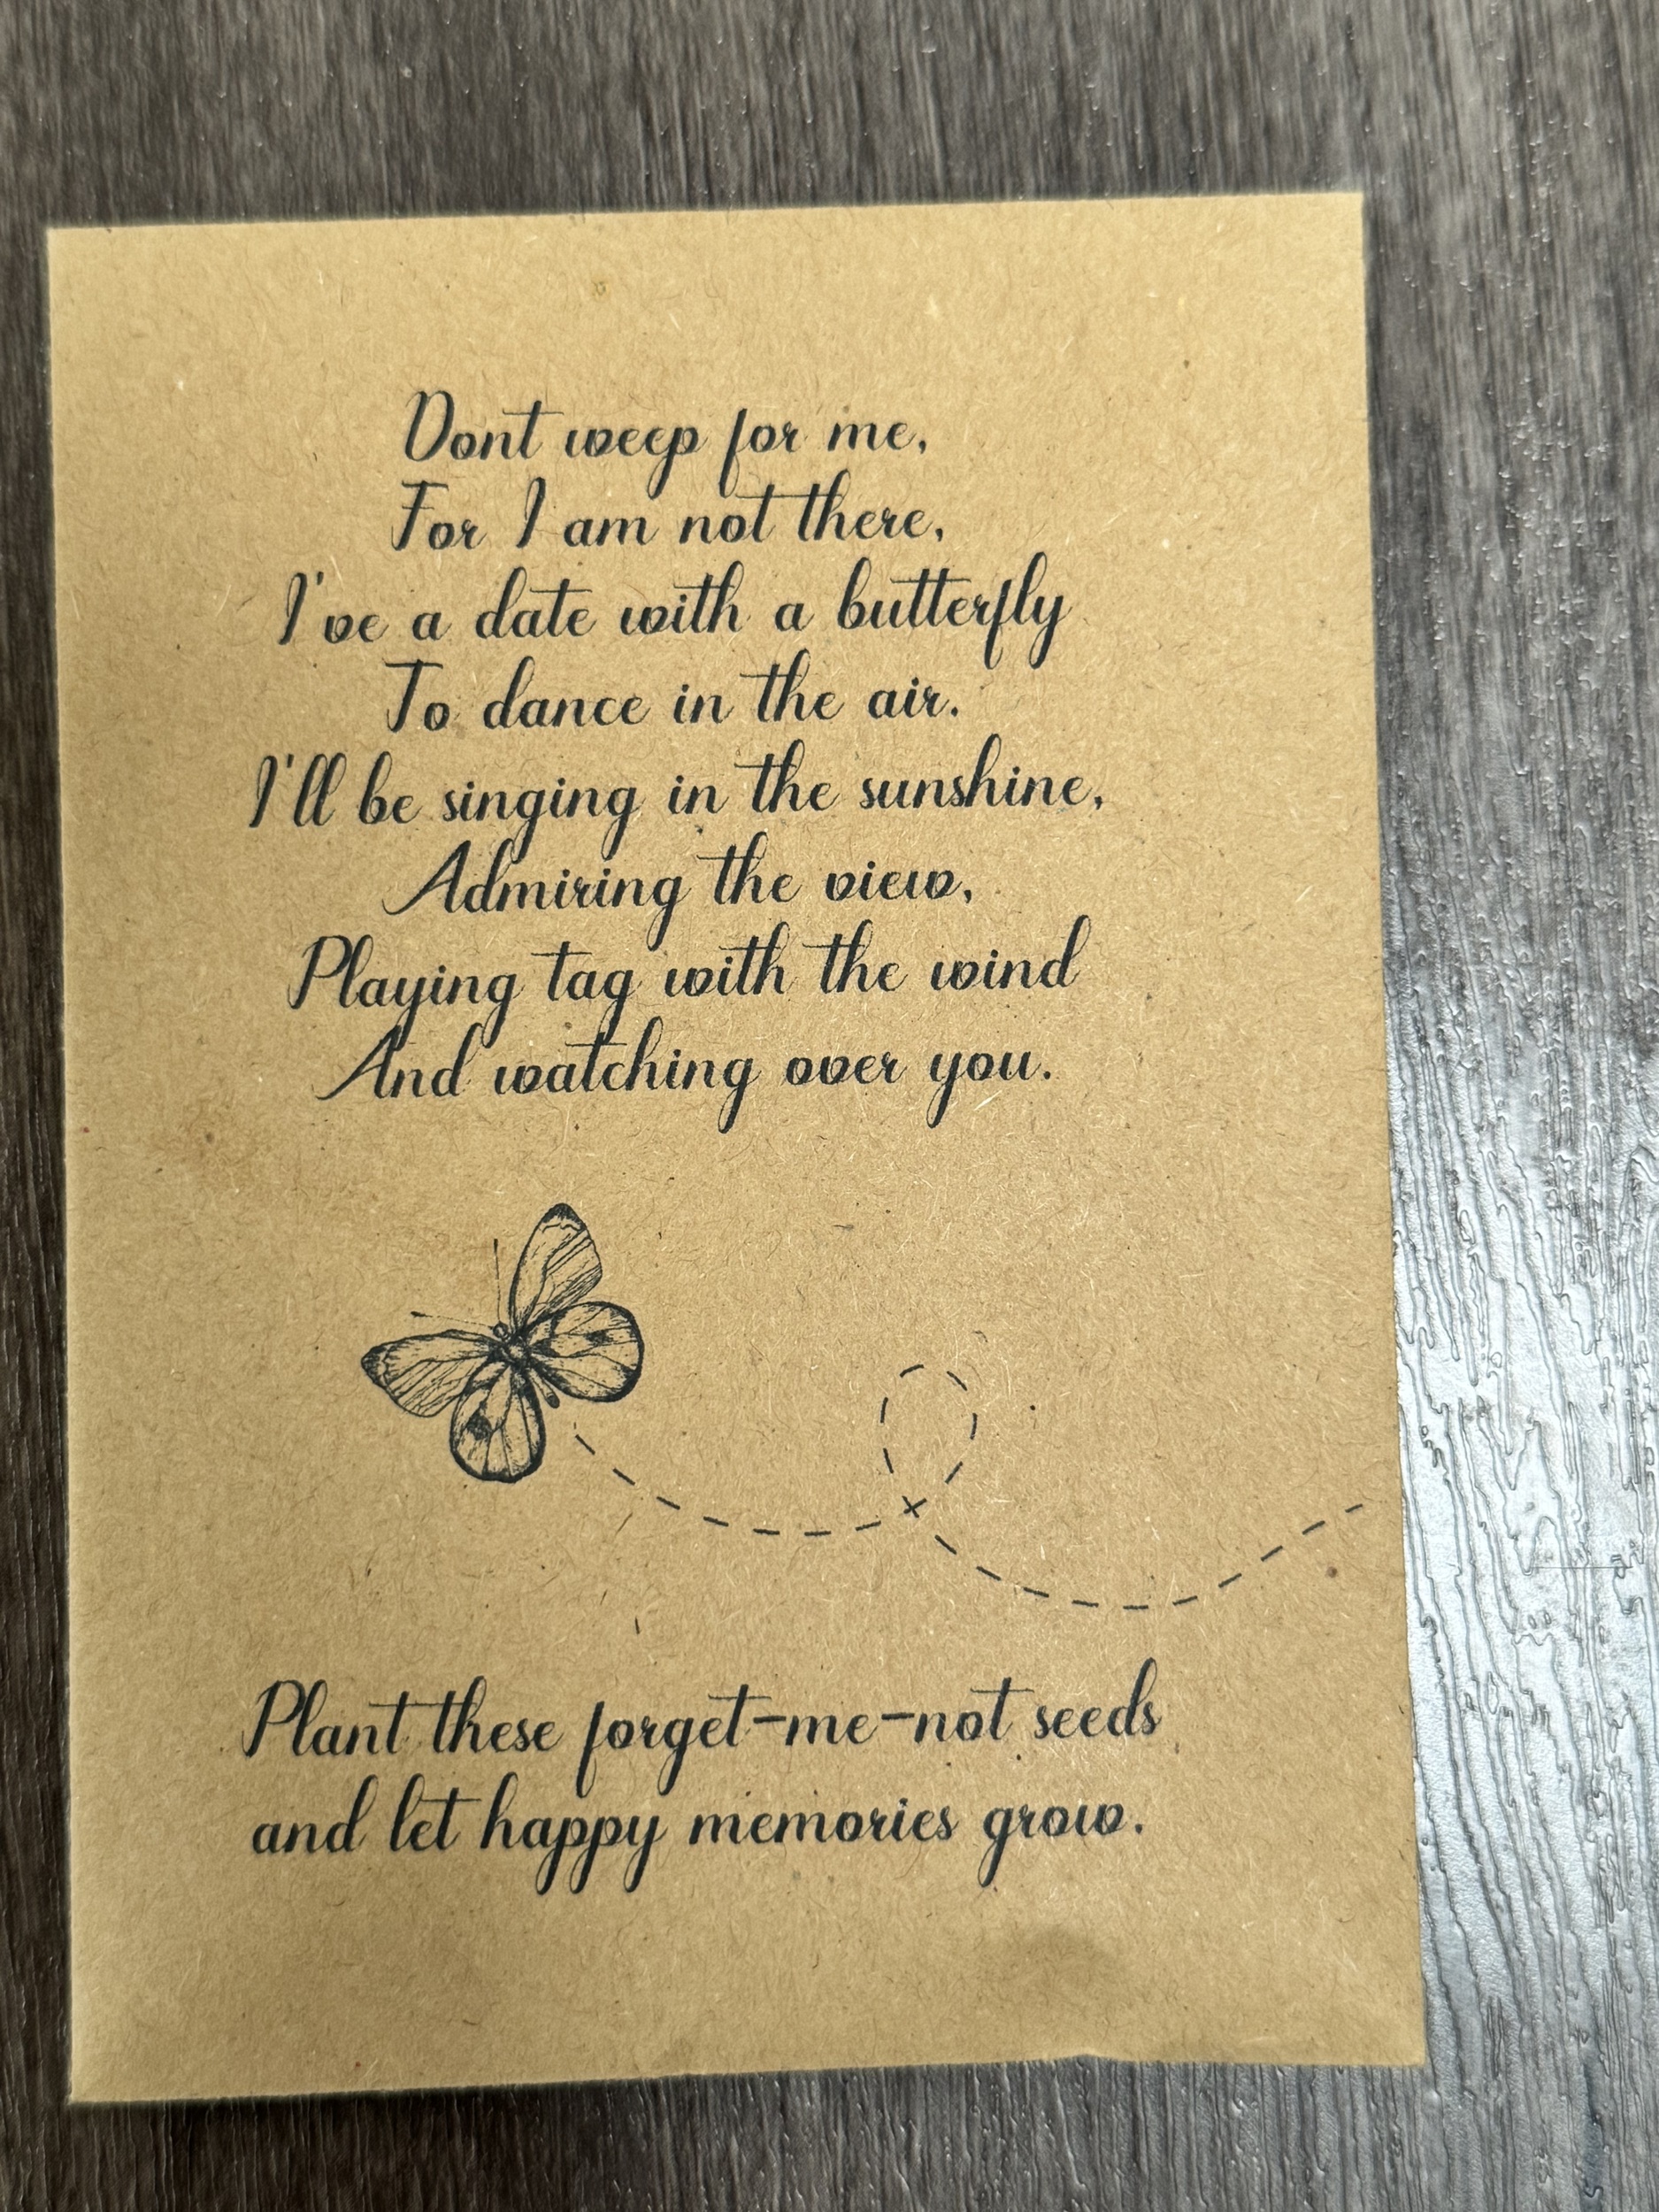 Dont weep for me,
For I am not there,
I've a date with a butterfly
To dance in the air.
I'll be singing in the sunshine,
Admiring the view,
Playing tag with the wind
And watching over you.
Plant these forget-me-not seeds
and let happy memories grow.